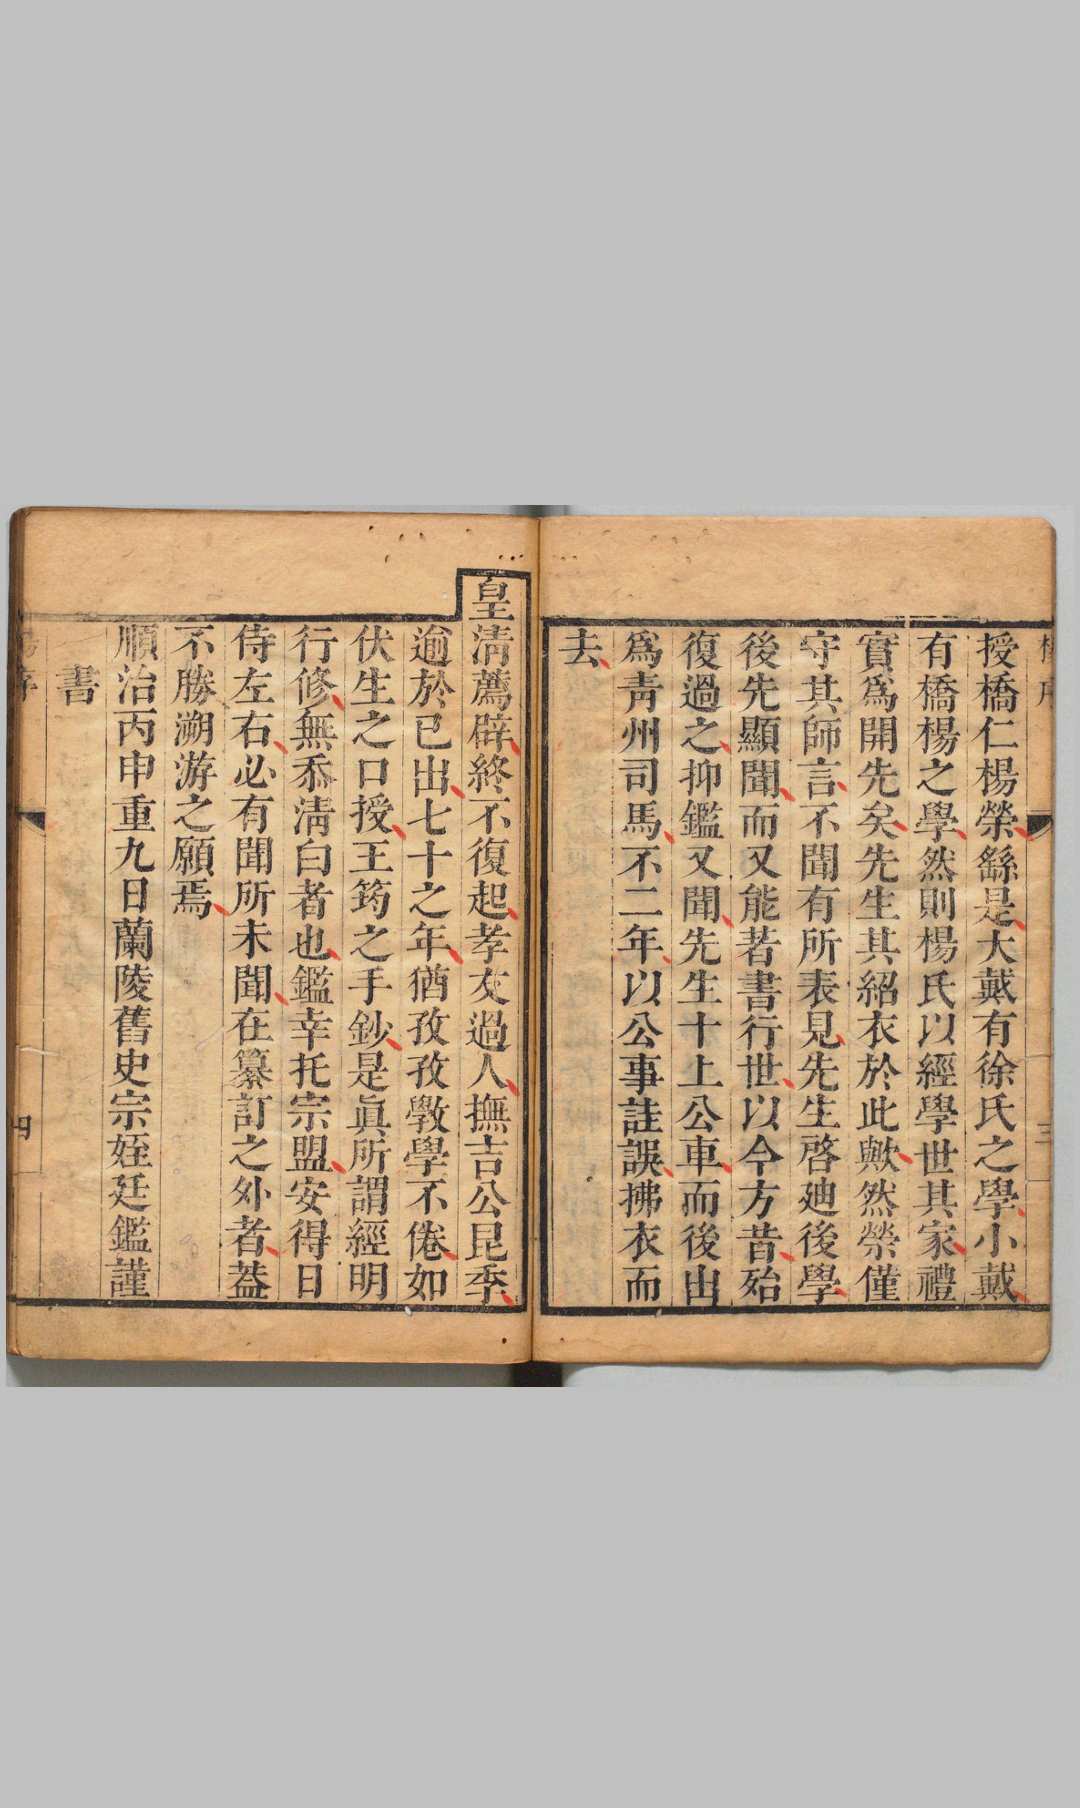 授橋仁楊榮繇是大戴有徐氏之學小戴
有橋楊之學然則楊氏以經學世其家禮
實爲開先矣先生其紹衣於此歟然榮僅
守其師言不聞有所表見先生啓廸後學
後先顯聞而又能若書行世以今方昔殆
復過之抑鑑又聞先生十上公車而後出
爲靑州司馬不二年以公事詿誤拂衣而
去
皇淸薦辟終不復起孝友過人撫吉公昆季
逾於已出七十之年猶孜孜斆學不倦如
伏生之口授王筠之手鈔是眞所謂經明
行修無忝淸白者也鑑幸托宗盟安得日
侍左右必有聞所未聞在纂訂之外者葢
不勝溯游之願焉
順治丙申重九日蘭陵舊史宗姪廷鑑謹
書
三
四